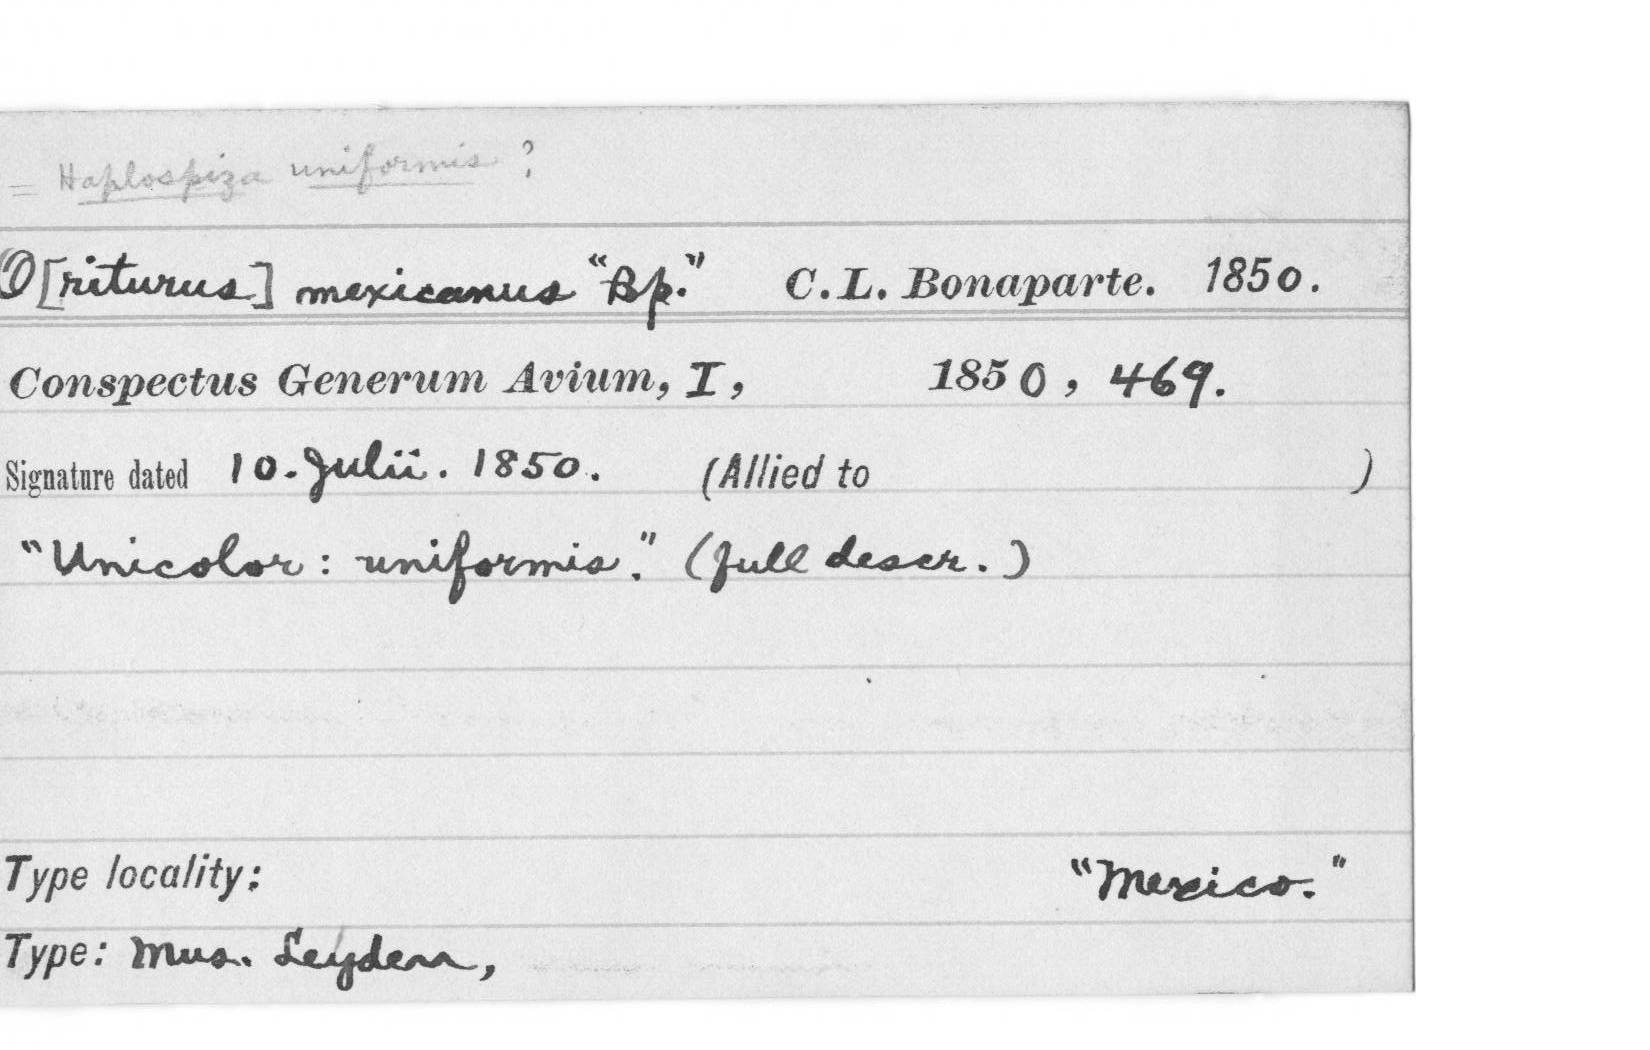 = Haplospiza uniformis ?
O[riturus] mexicanus "Bp." C. L. Bonaparte. 1850.
Conspectus Generum Avium, I, 1850, 469.
Signature dated 10. Julii. 1850. (Allied to )
"Unicolor: uniformis." (full descr.)
Type locality: "Mexico."
Type: Mus. Leyden,